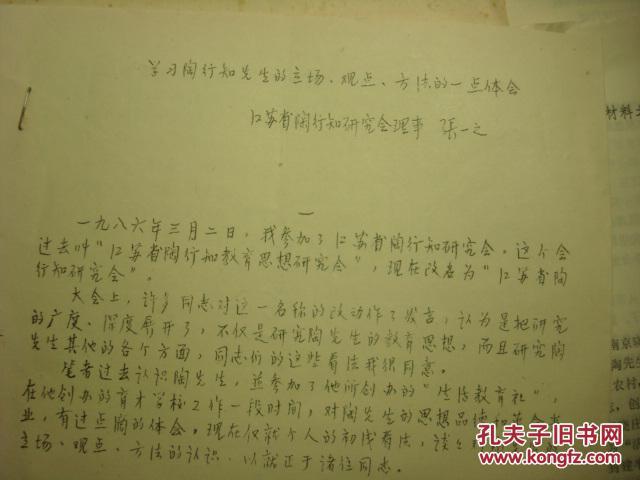 学习陶行知先生的立场、观点、方法的一点体会
江苏省陶行知研究会理事 張一之
一
一九八六年三月二日，我参加了江苏省陶行知研究会。这个会
过去叫“江苏省陶行知教育思想研究会”，现在改名为“江苏省陶
行知研究会”。
大会上，许多同志对这一名称的改动作了发言，认为是把研究
的广度、深度展开了，不仅是研究陶先生的教育思想，而且研究陶
先生其他的各个方面，同志们的这些看法我很同意。
笔者过去认识陶先生，並参加了他所创办的“生活教育社”，
在他创办的育才学校工作一段时间，对陶先生的思想品德和
业，有过点滴的体会。现在仅就个人的初浅看法，谈
立场、观点、方法的认识，以就正于诸位同志。
材料
南京
陶先生
农村
，创
孔夫子旧书网
www.kongfz.com